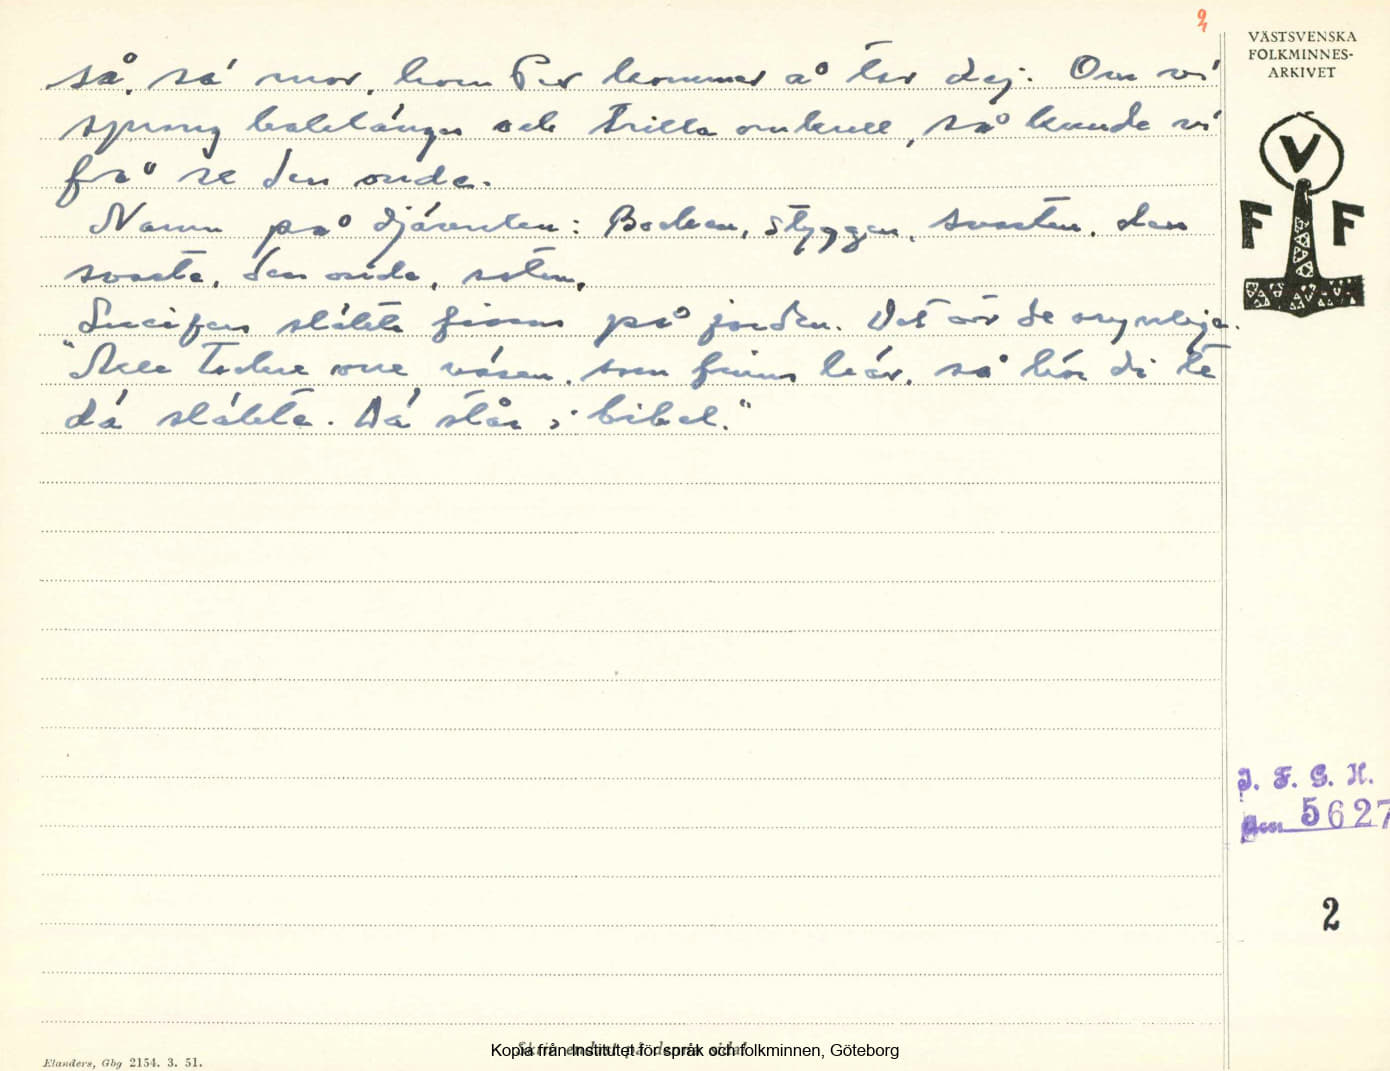 2
så, sá mor, kom Per kommer å tar dej. Om vi
sprang baklänges och trilla omkull, så kunde vi
få se den onde.
Namn på djävulen: Bocken, styggen, svarten, den
svarte, den onde, saten,
Lucifers släkte finns på jorden. Det är de osynliga.
"Alle tocke oue väsen, som finns här, så hör di te
dá släkte. Dá står i bibel."
VÄSTSVENSKA
FOLKMINNES-
ARKIVET
V
F F
I. F. G. H.
5627
2
Elanders, Gbg 2154. 3. 51.
Kopia från Institutet för språk och folkminnen, Göteborg